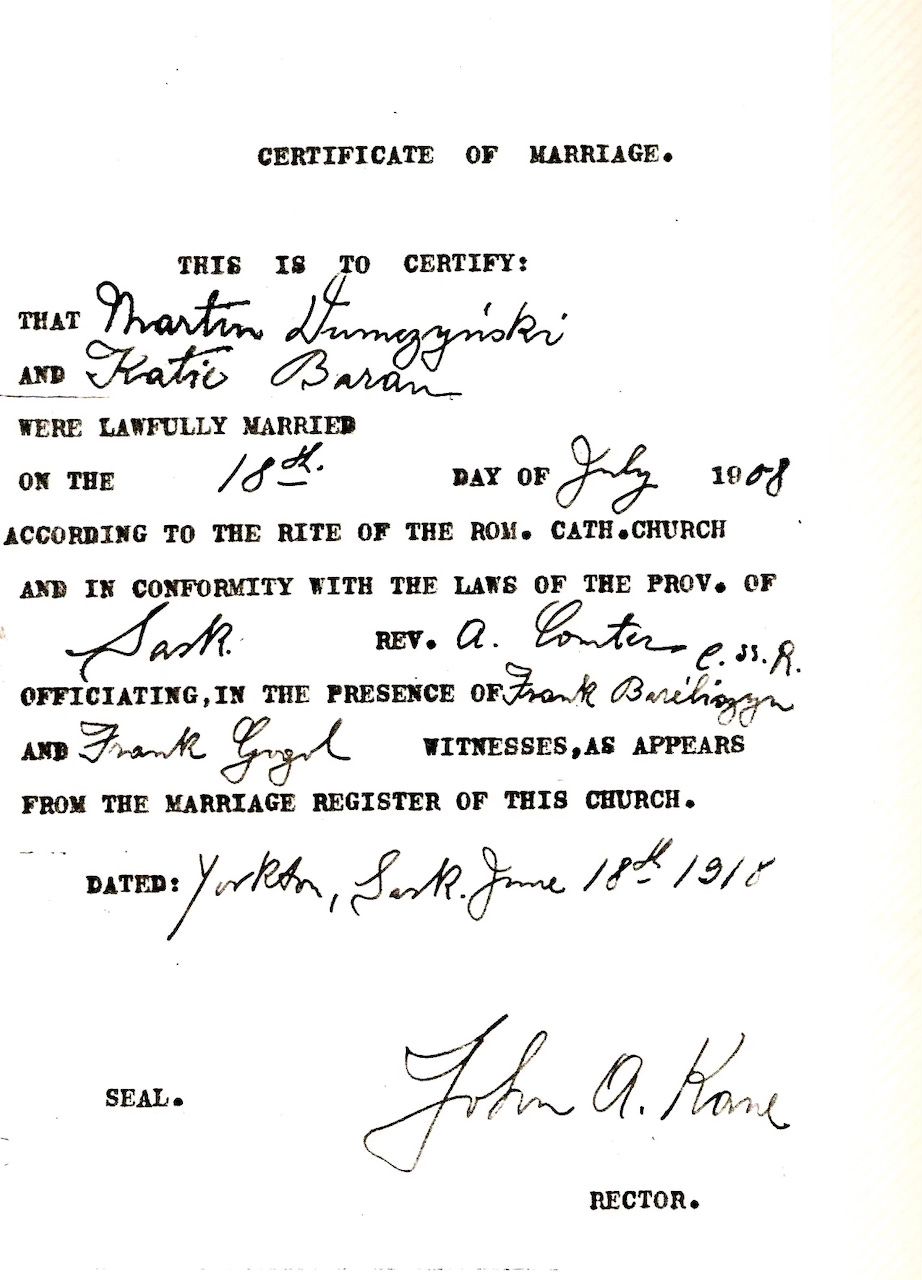 CERTIFICATE OF MARRIAGE.
THIS IS TO CERTIFY:
THAT Martin Dumczyński
AND Katie Baran
WERE LAWFULLY MARRIED
ON THE 18th. DAY OF July 1908
ACCORDING TO THE RITE OF THE ROM. CATH.CHURCH
AND IN CONFORMITY WITH THE LAWS OF THE PROV. OF
Sask. REV. A. C.SS.R.
OFFICIATING,IN THE PRESENCE OF Frank
AND Frank Gogol WITNESSES,AS APPEARS
FROM THE MARRIAGE REGISTER OF THIS CHURCH.
DATED: Yorkton, Sask. June 18th 1918
SEAL. John A. Kane
RECTOR.